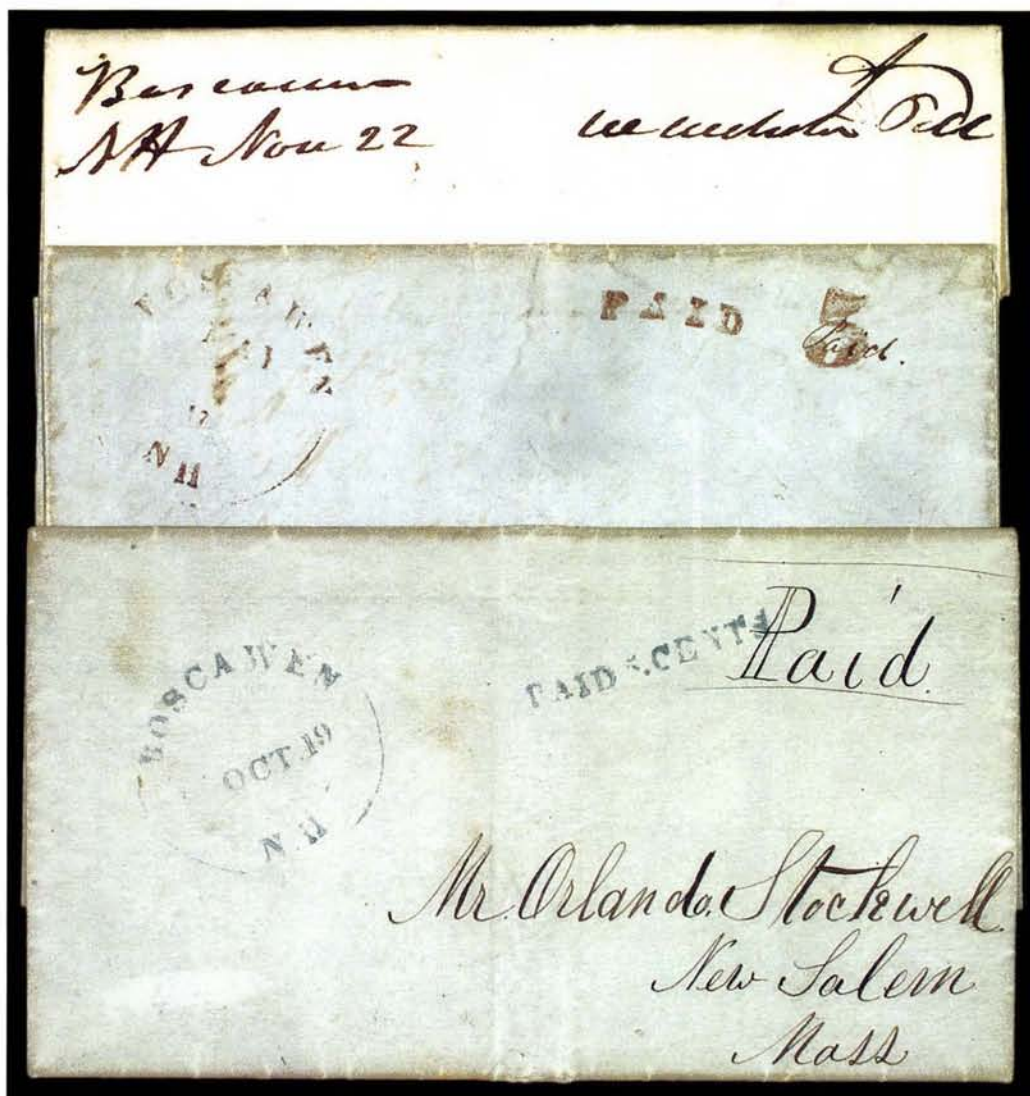 Boscawen
NH Nov 22
W Webster
BOSCAWEN
NH
PAID 5
Paid.
BOSCAWEN
OCT. 19
N.H
PAID 5.CENTS
Paid.
Mr. Orlando. Stockwell.
New Salem
Mass